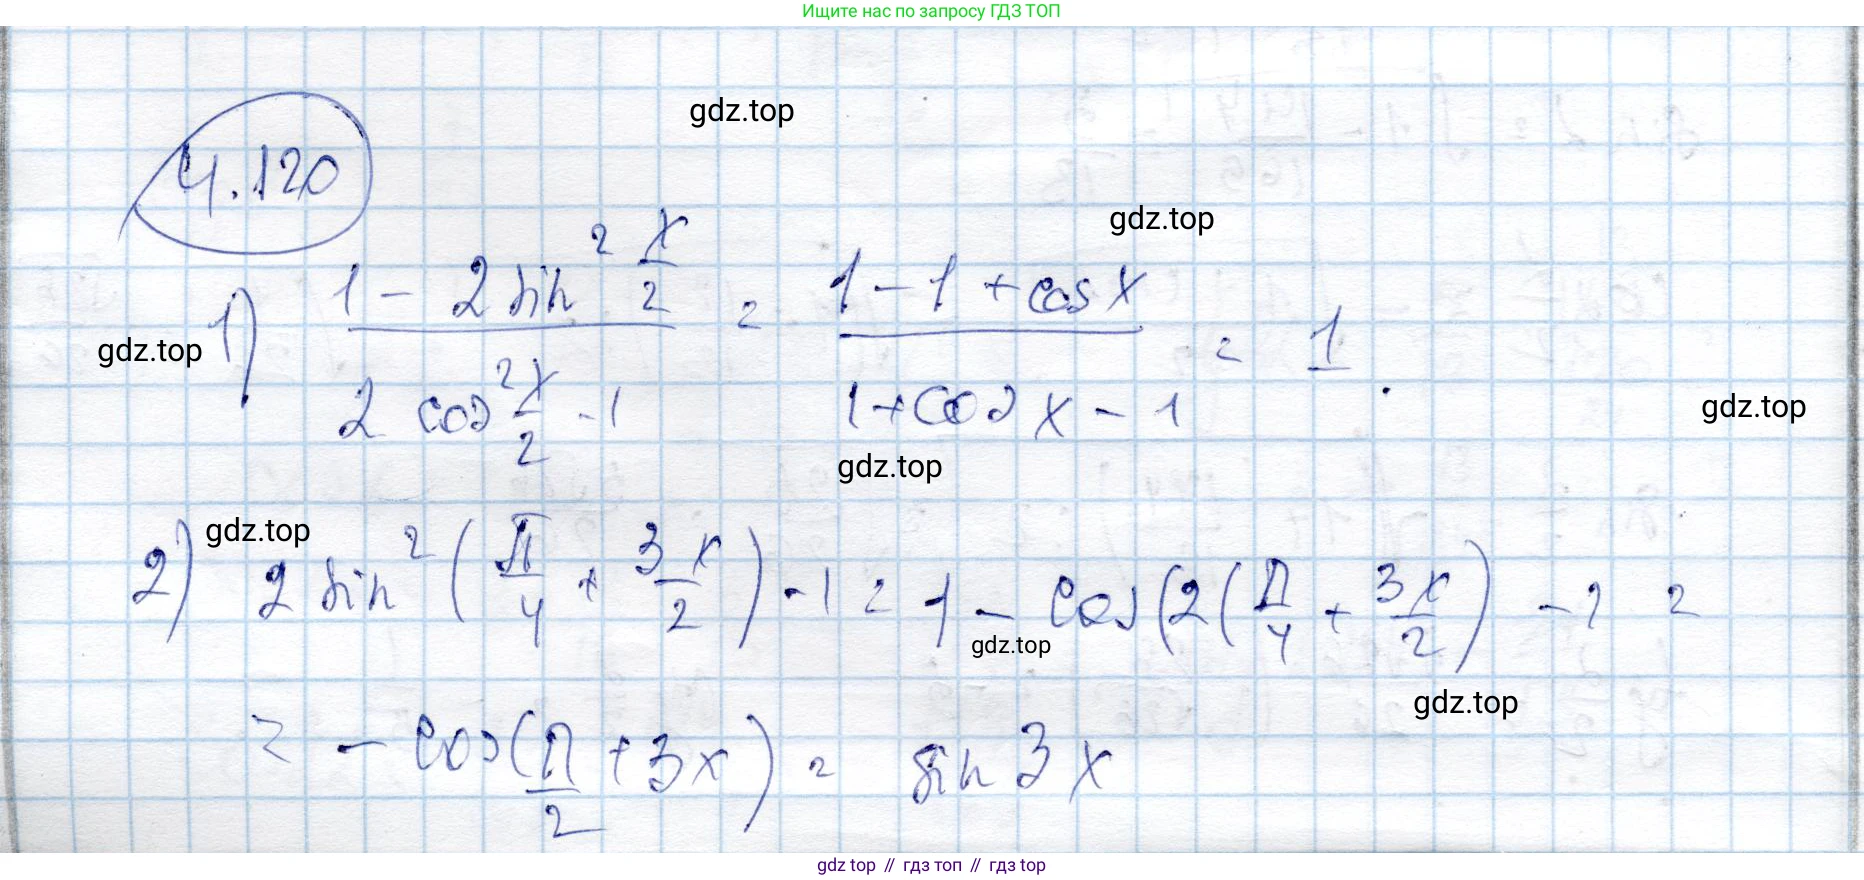 Ищите нас по запросу ГДЗ ТОП
gdz.top
4.120
gdz.top
1) (1 - 2 sin² x/2) / (2 cos² x/2 - 1) = (1 - 1 + cos x) / (1 + cos x - 1) = 1.
gdz.top
gdz.top
gdz.top
gdz.top
2) 2 sin² (π/4 + 3x/2) - 1 = 1 - cos(2(π/4 + 3x/2) - 1 =
gdz.top
gdz.top
= - cos(π/2 + 3x) = sin 3x
gdz top // гдз топ // гдз top